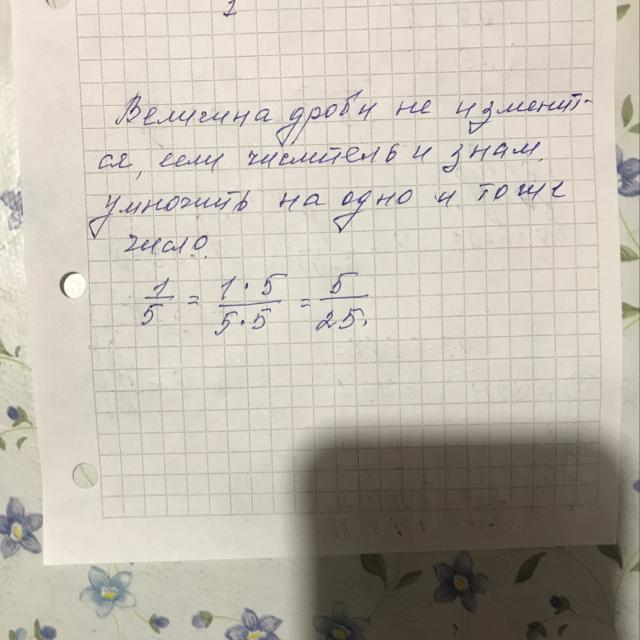 Величина дроби не изменит-
ся, если числитель и знам.
умножить на одно и тоже
число.
1/5 = 1·5/5·5 = 5/25.